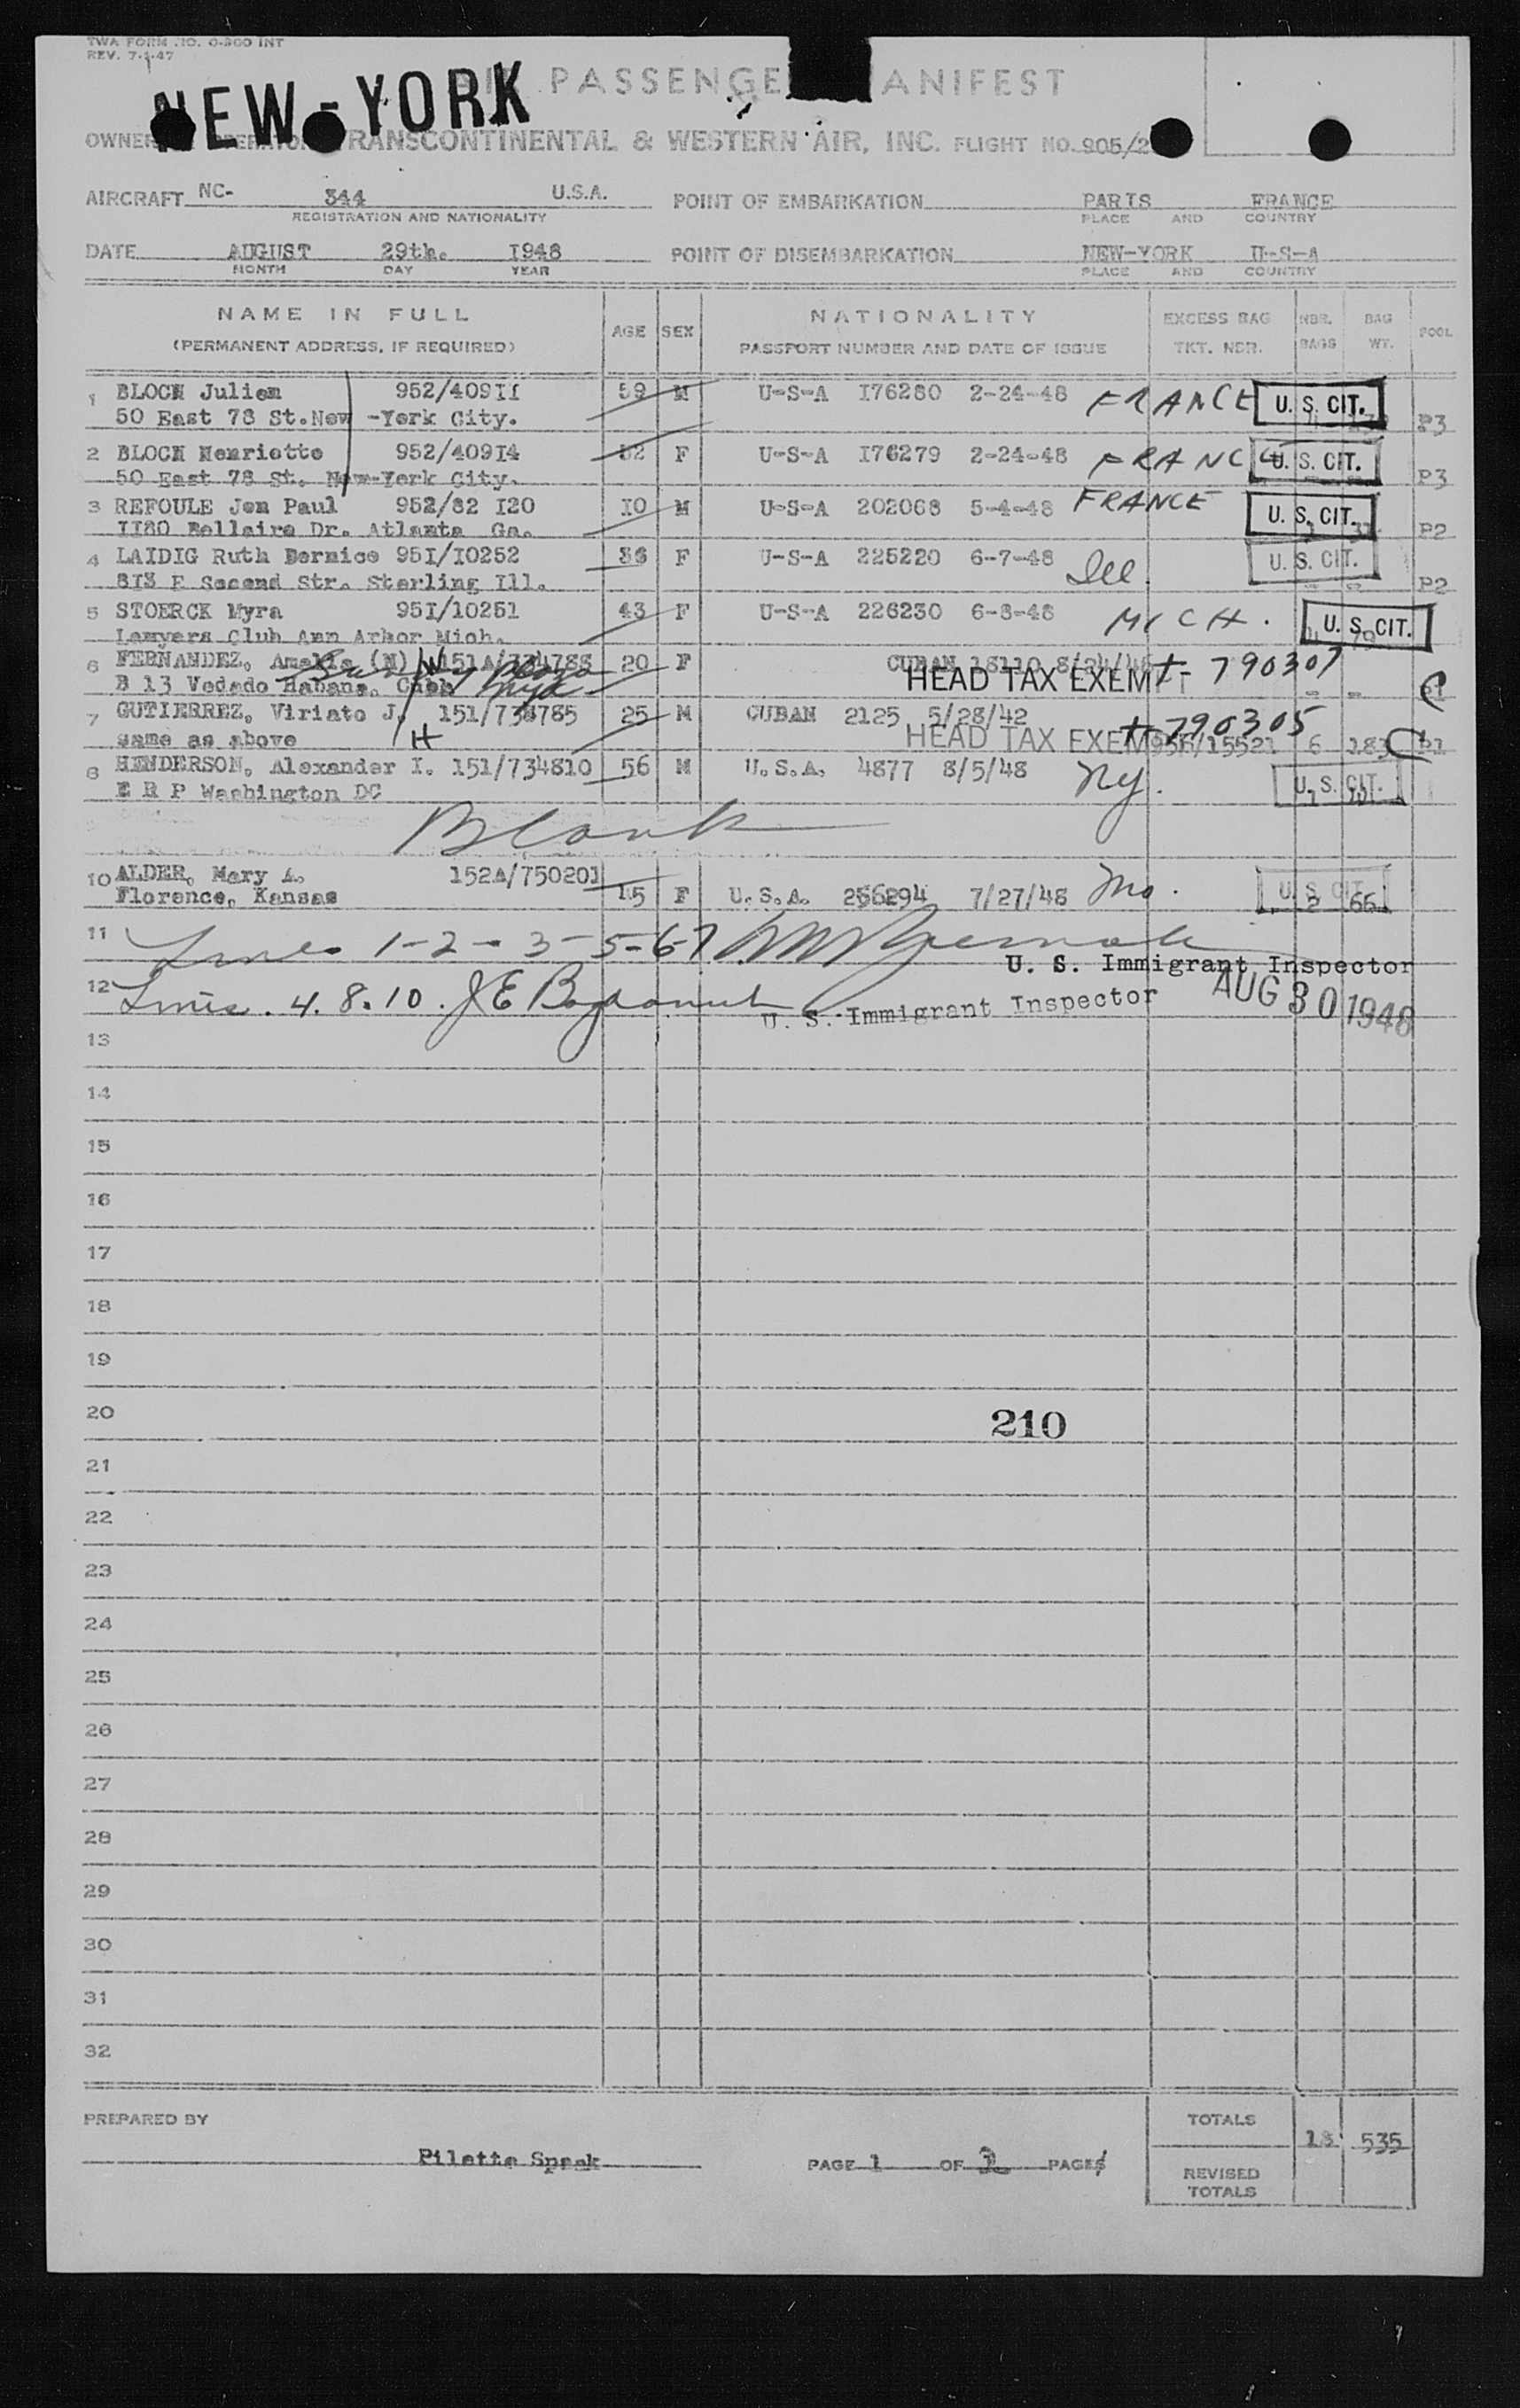 TWA FORM NO. 0-300 INT
REV. 7-1-47
PASSENGE ANIFEST
NEW-YORK
OWNER RANSCONTINENTAL & WESTERN AIR, INC. FLIGHT NO. 905/2
AIRCRAFT NC- 344 U.S.A. POINT OF EMBARKATION PARIS FRANCE
REGISTRATION AND NATIONALITY PLACE AND COUNTRY
DATE AUGUST 29th. 1948 POINT OF DISEMBARKATION NEW-YORK U-S-A
MONTH DAY YEAR PLACE AND COUNTRY
NAME IN FULL AGE SEX NATIONALITY EXCESS BAG NBR. BAG POOL
(PERMANENT ADDRESS, IF REQUIRED) PASSPORT NUMBER AND DATE OF ISSUE TKT. NBR. BAGS WT.
1 BLOCH Julien 952/409II 59 M U-S-A I76280 2-24-48 FRANCE U. S. CIT.
50 East 78 St.New -York City. P3
2 BLOCH Henriette 952/409I4 52 F U-S-A I76279 2-24-48 FRANCE U. S. CIT.
50 East 78 St. New-York City. P3
3 REFOULE Jen Paul 952/82 I20 IO M U-S-A 202068 5-4-48 FRANCE U. S. CIT.
II80 Bellaire Dr. Atlanta Ga. P2
4 LAIDIG Ruth Bernice 95I/I0252 36 F U-S-A 225220 6-7-48 Ill. U. S. CIT.
8I3 E Second Str. Sterling Ill. P2
5 STOERCK Myra 95I/10251 43 F U-S-A 226230 6-8-48 MICH. U. S. CIT.
Lawyers Club Ann Arbor Mich.
6 FERNANDEZ, Amalia (M) W 151A/734788 20 F CUBAN 18110 8/24/48 t- 790307
B 13 Vedado Habana. Cuba HEAD TAX EXEMPT P1
7 GUTIERREZ, Viriato J. 151/734785 25 M CUBAN 2125 5/28/42 t 790305
same as above H HEAD TAX EXEM 956/15521 6 183 P1
8 HENDERSON, Alexander I. 151/734810 56 M U.S.A. 4877 8/5/48 NY. U. S. CIT.
E R P Washington DC
Blank
10 ALDER, Mary A. 152A/750201
Florence, Kansas 15 F U.S.A. 256294 7/27/48 Mo. U. S. CIT. 2 66
11 Lines 1-2-3-5-6-7
U. S. Immigrant Inspector
12 Lines. 4. 8. 10. J E
U. S. Immigrant Inspector AUG 30 1948
13
14
15
16
17
18
19
20 210
21
22
23
24
25
26
27
28
29
30
31
32
PREPARED BY TOTALS 18 535
Pilette Speak PAGE 1 OF 2 PAGES
REVISED
TOTALS